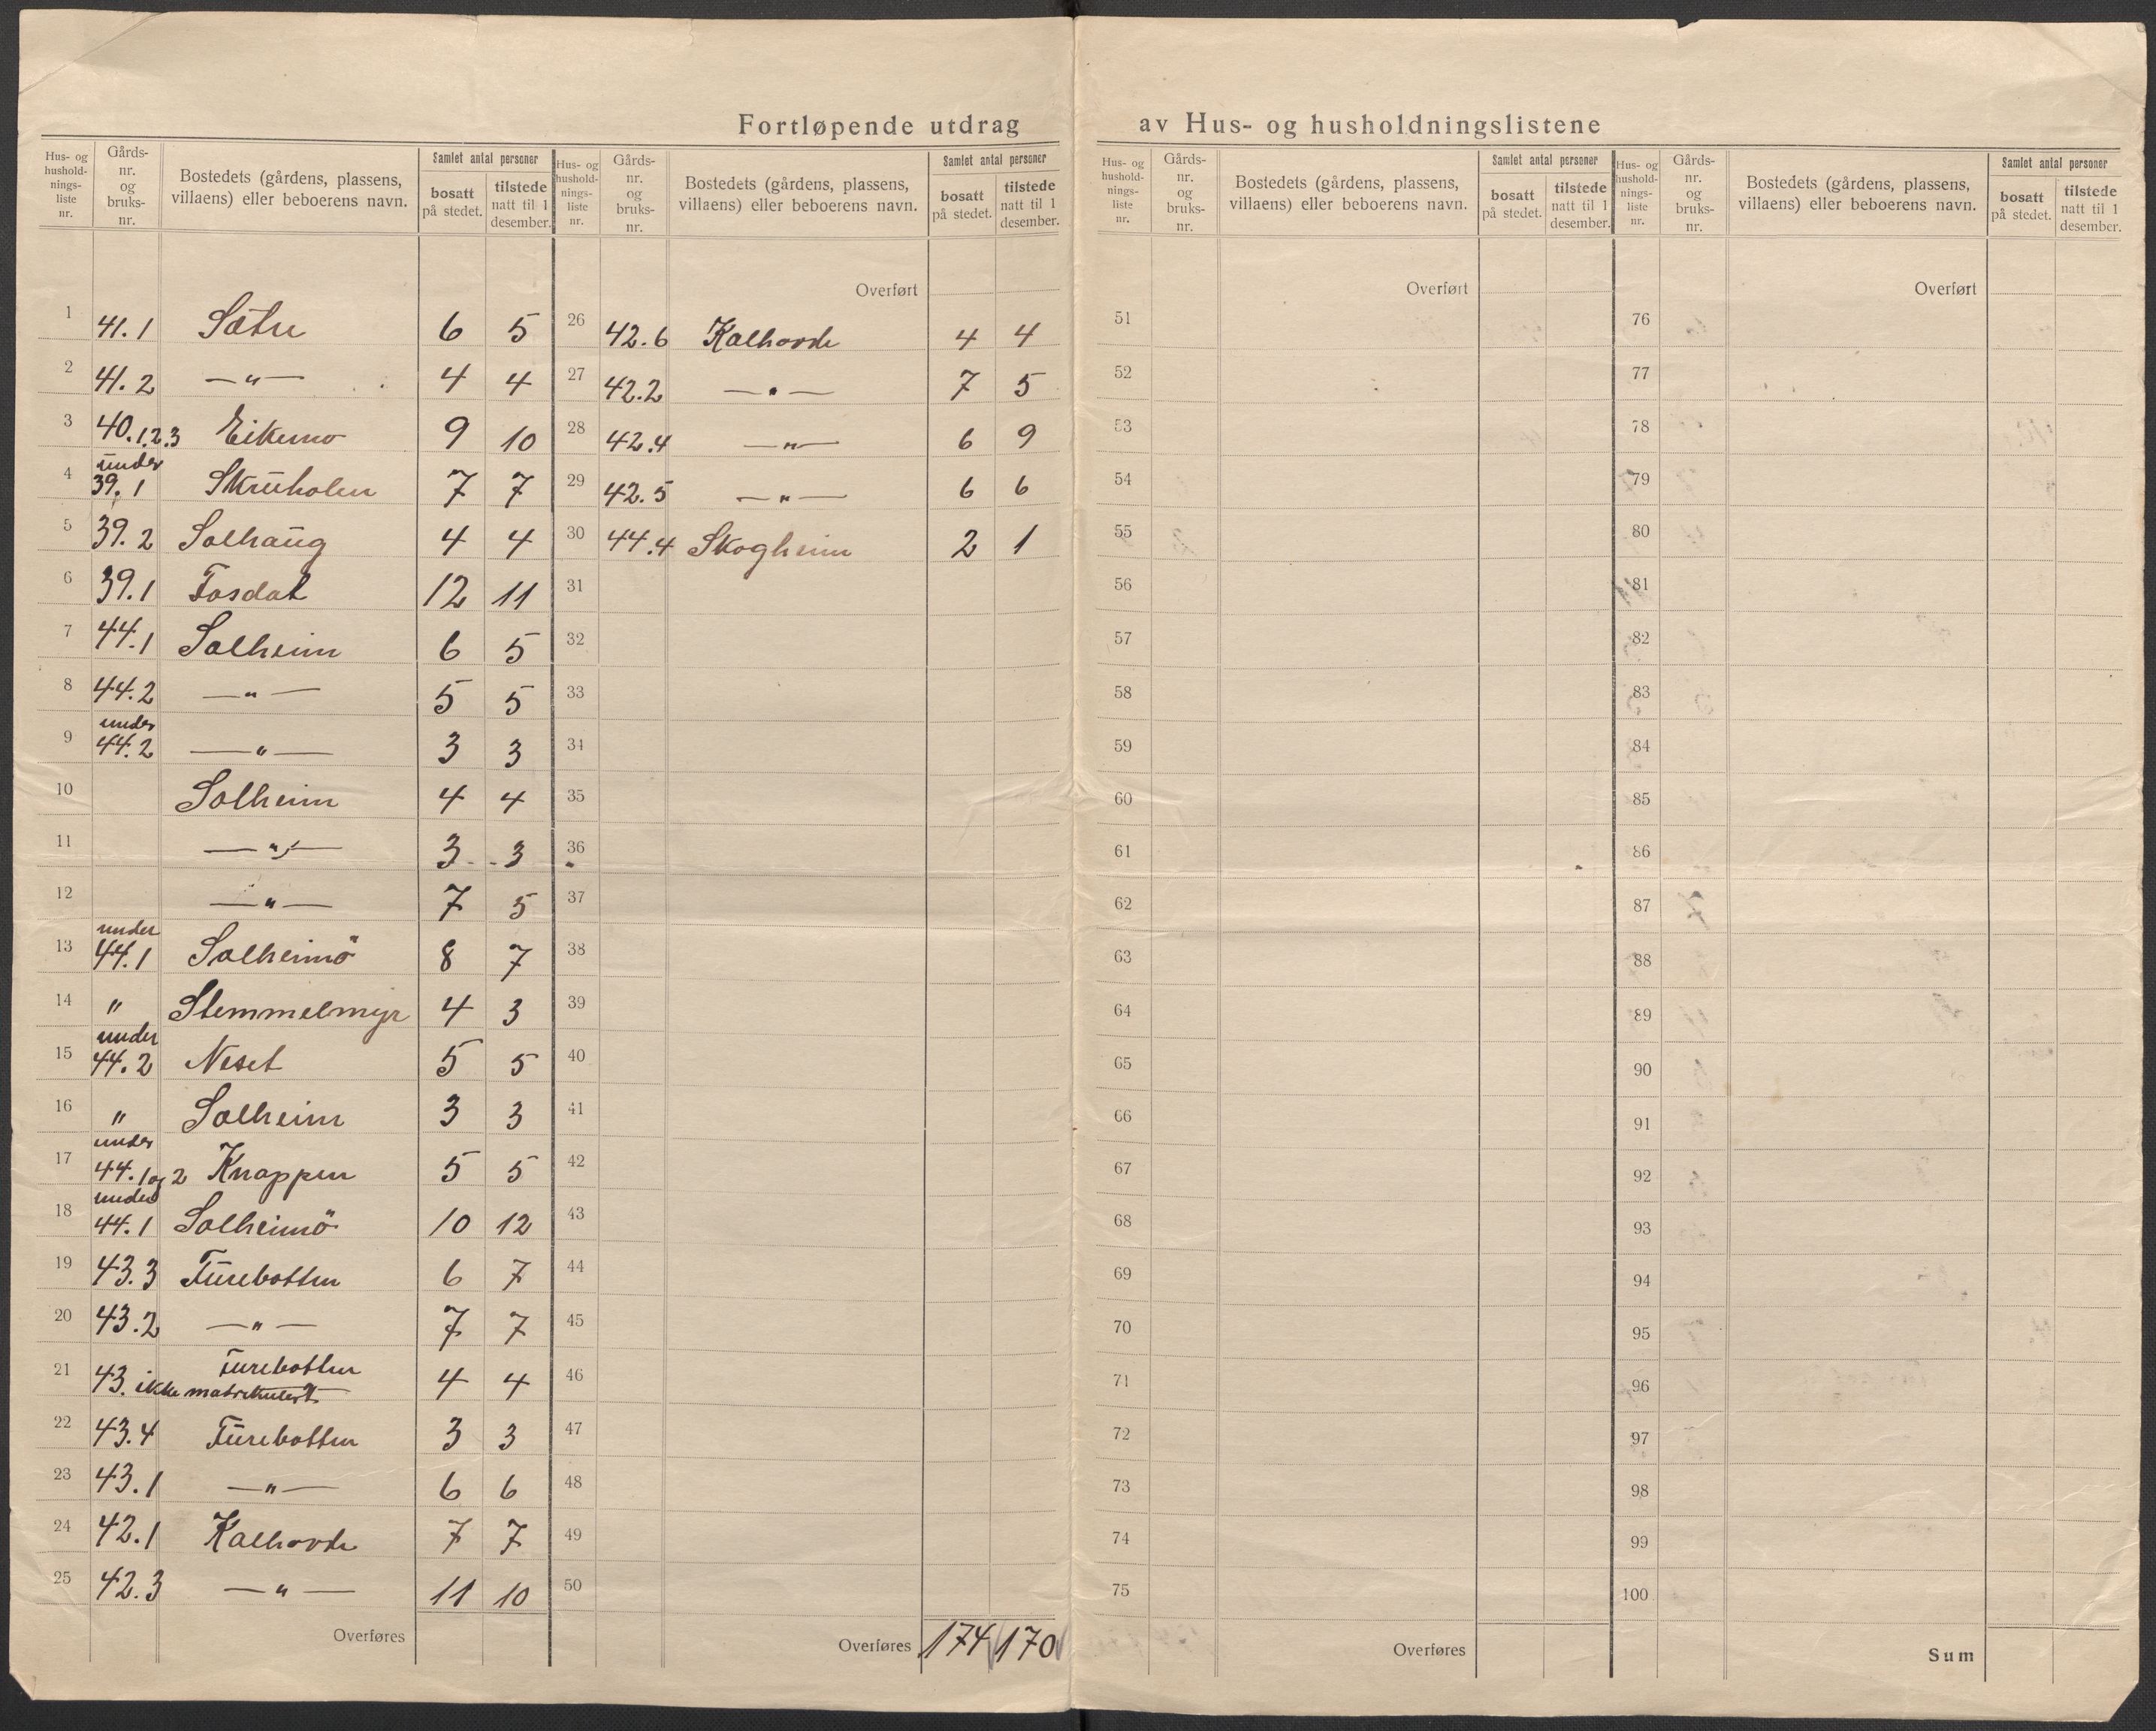 Fortløpende utdrag av Hus- og husholdningslistene
Hus- og husholdnings-liste nr. Gårds-nr. og bruks-nr. Bostedets (gårdens, plassens, villaens) eller beboerens navn. Samlet antal personer bosatt på stedet. tilstede natt til 1 desember.
1 41.1 Sætre 6 5
2 41.2 —"— 4 4
3 40.1.2.3 Eikemo 9 10
4 under 39.1 Skruholen 7 7
5 39.2 Solhaug 4 4
6 39.1 Fosdal 12 11
7 44.1 Solheim 6 5
8 44.2 —"— 5 5
9 under 44.2 —"— 3 3
10 Solheim 4 4
11 —"— 3 3
12 —"— 7 5
13 under 44.1 Solheimö 8 7
14 " Stemmelmyr 4 3
15 under 44.2 Neset 5 5
16 " Solheim 3 3
17 under 44.1 og 2 Knappen 5 5
18 under 44.1 Solheimö 10 12
19 43.3 Furebotten 6 7
20 43.2 —"— 7 7
21 43. ikke matrikulert Furebotten 4 4
22 43.4 Furebotten 3 3
23 43.1 —"— 6 6
24 42.1 Kalhovde 7 7
25 42.3 —"— 11 10
Overføres
Hus- og husholdnings-liste nr. Gårds-nr. og bruks-nr. Bostedets (gårdens, plassens, villaens) eller beboerens navn. Samlet antal personer bosatt på stedet. tilstede natt til 1 desember.
Overført
26 42.6 Kalhovde 4 4
27 42.2 —"— 7 5
28 42.4 —"— 6 9
29 42.5 —"— 6 6
30 44.4 Skogheim 2 1
31
32
33
34
35
36
37
38
39
40
41
42
43
44
45
46
47
48
49
50
Overføres 174 170
Hus- og husholdnings-liste nr. Gårds-nr. og bruks-nr. Bostedets (gårdens, plassens, villaens) eller beboerens navn. Samlet antal personer bosatt på stedet. tilstede natt til 1 desember.
Overført
51
52
53
54
55
56
57
58
59
60
61
62
63
64
65
66
67
68
69
70
71
72
73
74
75
Overføres
Hus- og husholdnings-liste nr. Gårds-nr. og bruks-nr. Bostedets (gårdens, plassens, villaens) eller beboerens navn. Samlet antal personer bosatt på stedet. tilstede natt til 1 desember.
Overført
76
77
78
79
80
81
82
83
84
85
86
87
88
89
90
91
92
93
94
95
96
97
98
99
100
Sum